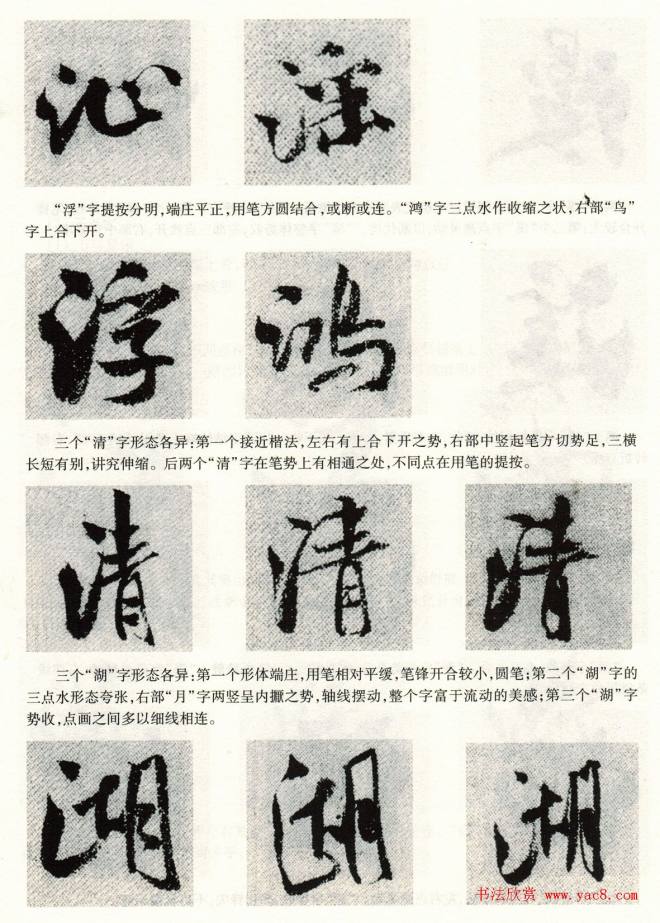 沁
“浮”字提按分明,端庄平正,用笔方圆结合,或断或连。“鸿”字三点水作收缩之状,右部“鸟”
字上合下开。
浮 鸿
三个“清”字形态各异:第一个接近楷法,左右有上合下开之势,右部中竖起笔方切势足,三横
长短有别,讲究伸缩。后两个“清”字在笔势上有相通之处,不同点在用笔的提按。
清 清 清
三个“湖”字形态各异:第一个形体端庄,用笔相对平缓,笔锋开合较小,圆笔;第二个“湖”字的
三点水形态夸张,右部“月”字两竖呈内擫之势,轴线摆动,整个字富于流动的美感;第三个“湖”字
势收,点画之间多以细线相连。
湖 湖 湖
书法欣赏 www.yac8.com